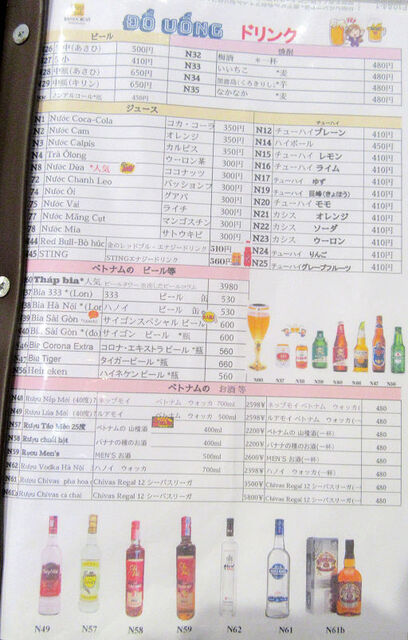 ĐỒ UỐNG ドリンク
ビール
中(あさひ) 500円
小 410円
中瓶(あさひ) 650円
中瓶(キリン) 650円
ノンアルコール*瓶 450円
焼酎
N32 梅酒 *一杯 480円
N33 いいちこ *麦 480円
N34 *芋 480円
N35 なかなか *麦 480円
ジュース
N1 Nước Coca-Cola コカ・コーラ 350円
N2 Nước Cam オレンジ 350円
N3 Nước Calpis カルピス 350円
N4 Trà Ôlong ウーロン茶 300円
N8 Nước Dừa *人気 ココナッツ 300円
72 Nước Chanh Leo パッションフ 300円
74 Nước Ổi グアバ 300円
75 Nước Vải ライチ 300円
77 Nước Măng Cụt マンゴスチン 300円
78 Nước Mía サトウキビ 300円
N44 Red Bull-Bò húc 金のレッドブル・エナジードリンク 510円
N45 STING STINGエナジードリンク 560円
チューハイ
N12 チューハイプレーン 410円
N14 ハイボール 450円
N15 チューハイ レモン 410円
N16 チューハイ ライム 410円
N17 チューハイ ゆず 410円
N19 チューハイ 巨峰(きょほう) 410円
N20 チューハイ モモ 410円
N21 カシス オレンジ 410円
N22 カシス ソーダ 410円
N23 カシス ウーロン 410円
N24 チューハイ りんご 410円
N25 チューハイグレープフルーツ 410円
ベトナムの ビール等
Tháp bia*人気 3980
Bia 333 *(Lon) 333 ビール 缶 530
Bia Hà Nội *(Lon ハノイ ビール 缶 530
Bia Sài Gòn サイゴンスペシャルビール 600
Bia Sài Gòn *(do サイゴン ビール *瓶 600
Bia Corona Extra コロナ・エキストラビール*瓶 660
Bia Tiger タイガービール *瓶 660
N56 Heineken ハイネケンビール *瓶 560
N60 N37 N38 N39 N40 N46 N47 N56
ベトナムの お酒 等
N48 Rượu Nếp Mới (40度) ベトナム ウォッカ 700ml 2598¥ ネップモイ ベトナム ウォッカ 480
N49 Rượu Lúa Mới (40度) ルアモイ ウォッカ 500ml 2598¥ ルアモイ ベトナム ウォッカ 480
N57 Rượu Táo Mèo 25度 ベトナムの 山楂酒 400ml 2200¥ ベトナムの 山楂酒(一杯) 480
N58 Rượu chuối hột バナナの種のお酒 400ml 2200¥ バナナの種のお酒(一杯) 480
N59 Rượu Men's MEN'S お酒 500ml 2600¥ MEN'S お酒(一杯) 480
N62 Rượu Vodka Hà Nội ハノイ ウォッカ 700ml 2598¥ ハノイ ウォッカ(一杯) 480
N61 Rượu Chivas pha hoa Chivas Regal 12 シーバスリーガ 3500¥ Chivas Regal 12 シーバスリーガ(一 480
N61 Rượu Chivas cả chai Chivas Regal 12 シーバスリーガ 5800¥ Chivas Regal 12 シーバスリーガ(一 480
N49 N57 N58 N59 N62 N61 N61b